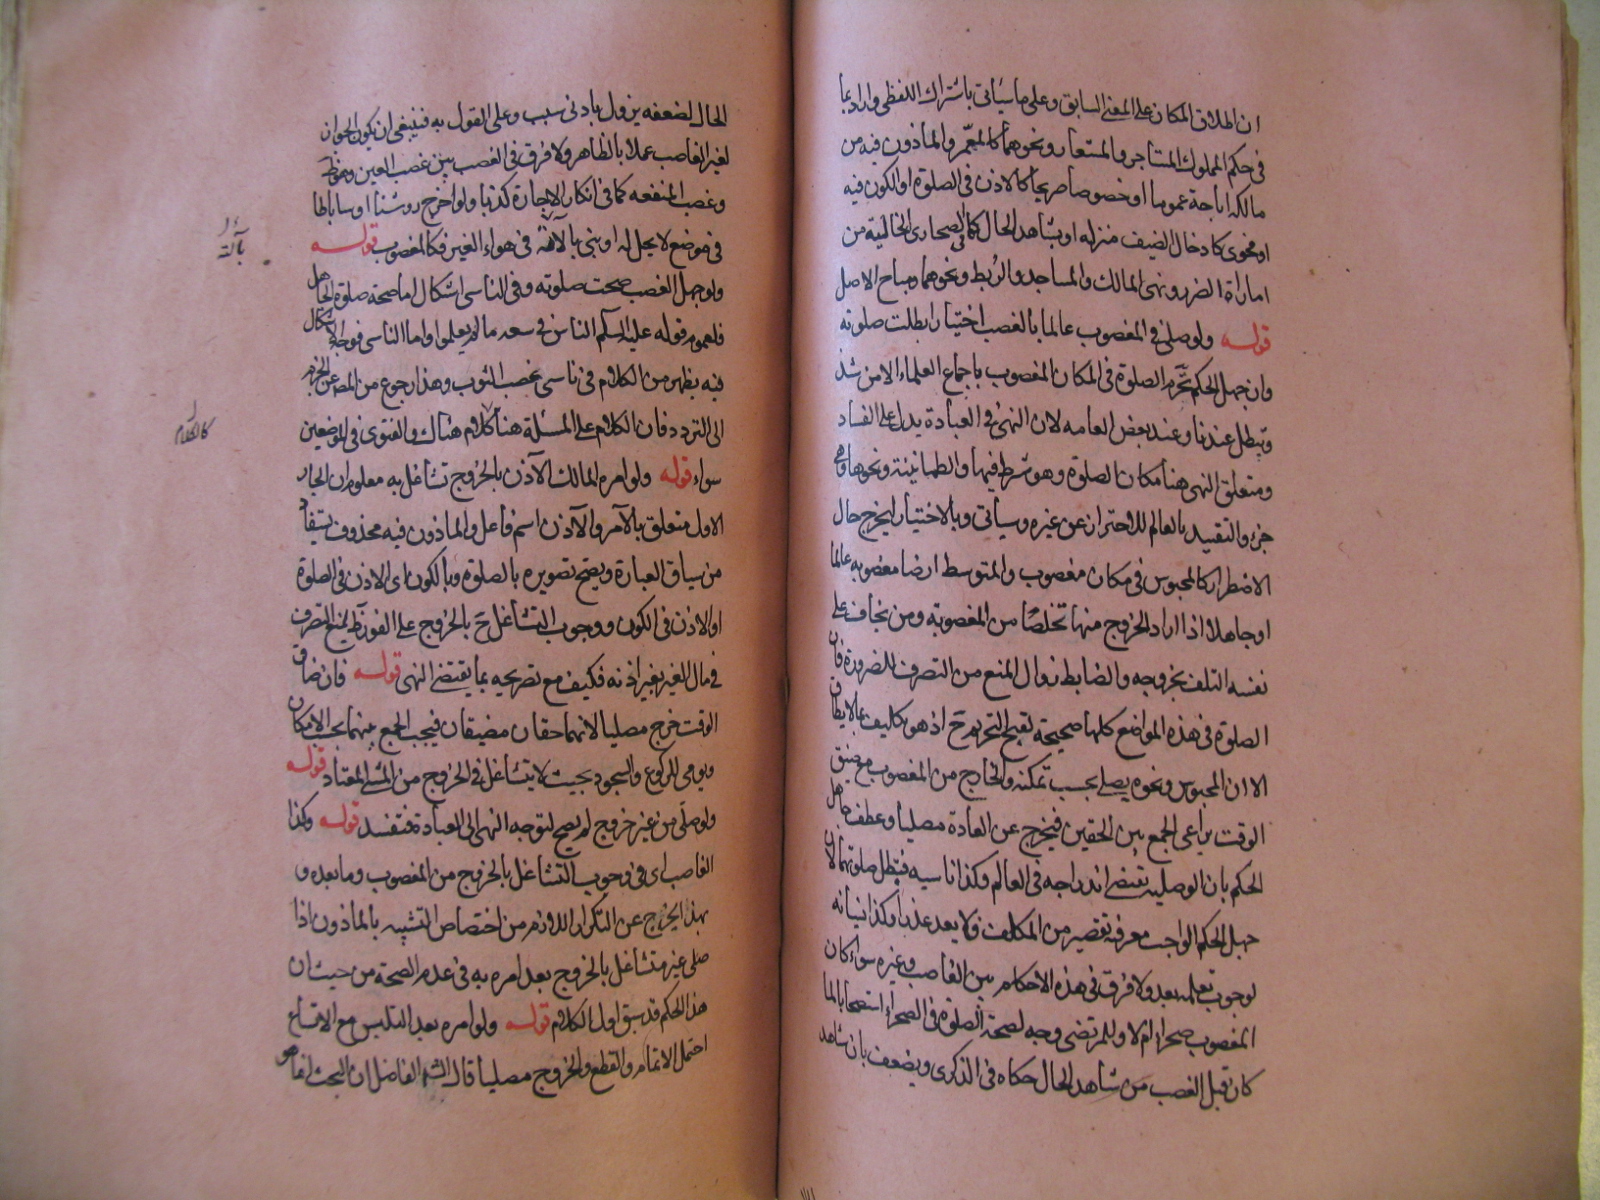 ان اطلاق المكان على المعنى السابق وعلى ما سيأتى باشتراك اللفظى واراد بما
فى حكم المملوك المستاجر والمستعار ونحوهما كالمعمّر والماذون فيه من
مالكه اباحة عموما او خصوصا صريحا كالاذن فى الصلوة او الكون فيه
او فحوى كادخال الضيف منزله او بشاهد الحال كما فى الصحارى الخالية من
امارة الضرر ونهى المالك والمساجد والرُبط ونحوهما ومباح الاصل
قوله ولو صلى فى المغصوب عالما بالغصب اختيارا بطلت صلوته
وان جهل الحكم تحرم الصلوة فى المكان المغصوب باجماع العلماء الا من شذ
وتبطل عندنا وعند بعض العامه لان النهى فى العبادة يدل على الفساد
ومتعلق النهى هنا مكان الصلوة وهو شرط فيها والطمانينة ونحوها وهى
جزء والتقييد بالعالم للاحتراز عن غيره وسيأتى وبالاختيار ليخرج حال
الاضطرار كالمحبوس فى مكان مغصوب والمتوسط ارضا مغصوبه عالما
او جاهلا اذا اراد الخروج منها تخلصًا من المغصوبة ومن يخاف على
نفسه التلف بخروجه والضابط زوال المنع من التصرف للضرورة فان
الصلوة فى هذه المواضع كلها صحيحة لقبح التحريم ح اذ هو تكليف بما لا يطاق
الا ان المحبوس ونحوه يصلى بحسب تمكنه والخارج من المغصوب مع ضيق
الوقت يراعى الجمع بين الحقين فيخرج عن العادة مصليا وعطف جاهل
الحكم بان الوصليه يقتضى اندراجه فى العالم وكذا ناسيه فتبطل صلوتهما لان
جهل الحكم الواجب معرفته تقصير من المكلف فلا يعد عذرا وكذا نسيانه
لوجوب تعلمه بعد ولا فرق فى هذه الاحكام بين الغاصب وغيره سواء كان
المغصوب صحراء ام لا وللمرتضى وجه لصحة الصلوة فى الصحراء استصحابا لما
كان قبل الغصب من شاهد الحال حكاه فى الذكرى ويضعف بان شاهد
الحال لضعفه يزول بادنى سبب وعلى القول به فينبغى ان يكون الجواز
لغير الغاصب عملا بالظاهر ولا فرق فى الغصب بين غصب العين وهو ظ
وغصب المنفعه كما فى انكار الاجارة كذبا ولو اخرج روشنا او ساباطا
فى موضع لا يحل له او بنى بالآلة فى هواء الغير فكالمغصوب قوله
ولو جهل الغصب صحت صلوته وفى الناسى اشكال اما صحة صلوة الجاهل
فلعموم قوله عليه السلم الناس فى سعه ما لم يعلموا واما الناسى فوجه الاشكال
فيه يظهر من الكلام فى ناسى غصب الثوب وهذا رجوع من المص عن الجزم
الى التردد فان الكلام على المسئلة هنا كالكلام هناك والفتوى فى الموضعين
سواء قوله ولو امره المالك الآذن بالخروج تشاغل به معلوم ان الجار
الاول متعلق بالآمر والآذن اسم فاعل والماذون فيه محذوف يستفاد
من سياق العبارة ويصح تصويره بالصلوة وبالكون اى الاذن فى الصلوة
او الاذن فى الكون ووجوب التشاغل ح بالخروج على الفور ظ لمنع التصرف
فى مال الغير بغير اذنه فكيف مع تصريحه بما يقتضى النهى قوله فان ضاق
الوقت خرج مصليا لانهما حقان مضيقان فيجب الجمع بينهما بحسب الامكان
ويومى للركوع والسجود بحيث لا يتشاغل فى الخروج من المشى المعتاد قوله
ولو صلى من غير خروج لم يصح لتوجه النهى الى العبادة فتفسد قوله وكذا
الغاصب اى فى وجوب التشاغل بالخروج من المغصوب وما بعده و
بهذا يخرج عن التكرار اللازم من اختصاص التشبيه بالماذون اذا
صلى غير متشاغل بالخروج بعد امره به فى عدم الصحة من حيث ان
هذا الحكم قد سبق اول الكلام قوله ولو امره بعد التلبس مع الاتساع
احتمل الاتمام والقطع والخروج مصليا قال الفاضل ان البحث انما هو
بآلته
كالكلام